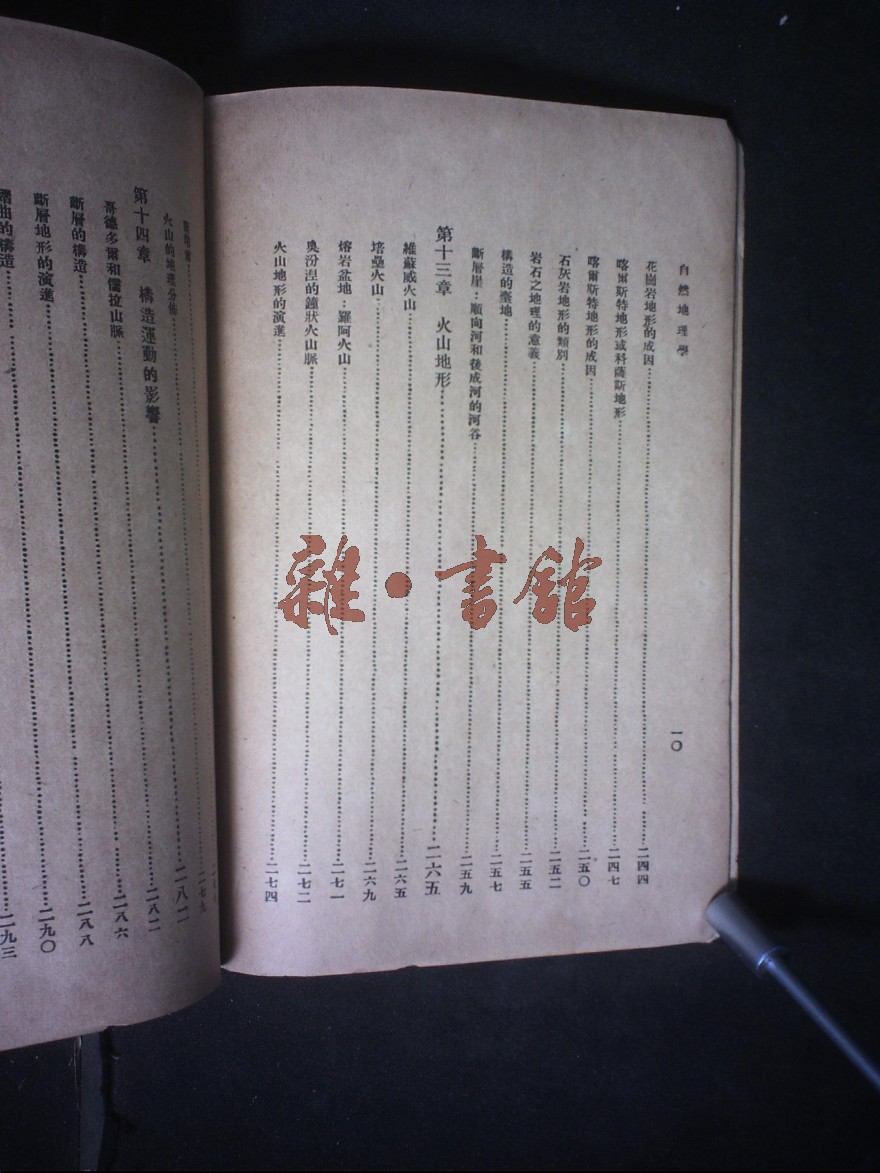 自然地理學
花崗岩地形的成因 二四四
喀爾斯特地形或科薩斯地形 二四七
喀爾斯特地形的成因 二五〇
石灰岩地形的類別 二五二
岩石之地理的意義 二五五
構造的臺地 二五七
斷層崖:順向河和後成河的河谷 二五九
第十三章 火山地形 二六五
維蘇威火山 二六五
培壘火山 二六九
熔岩盆地:羅阿火山 二七一
奥汾涅的鐘狀火山脈 二七二
火山地形的演進 二七四
一〇
二七九
火山的地理分佈 二八一
第十四章 構造運動的影響 二八二
哥德多爾和儒拉山脈 二八六
斷層的構造 二八八
斷層地形的演進 二九〇
褶曲的構造 二九三
雜·書館